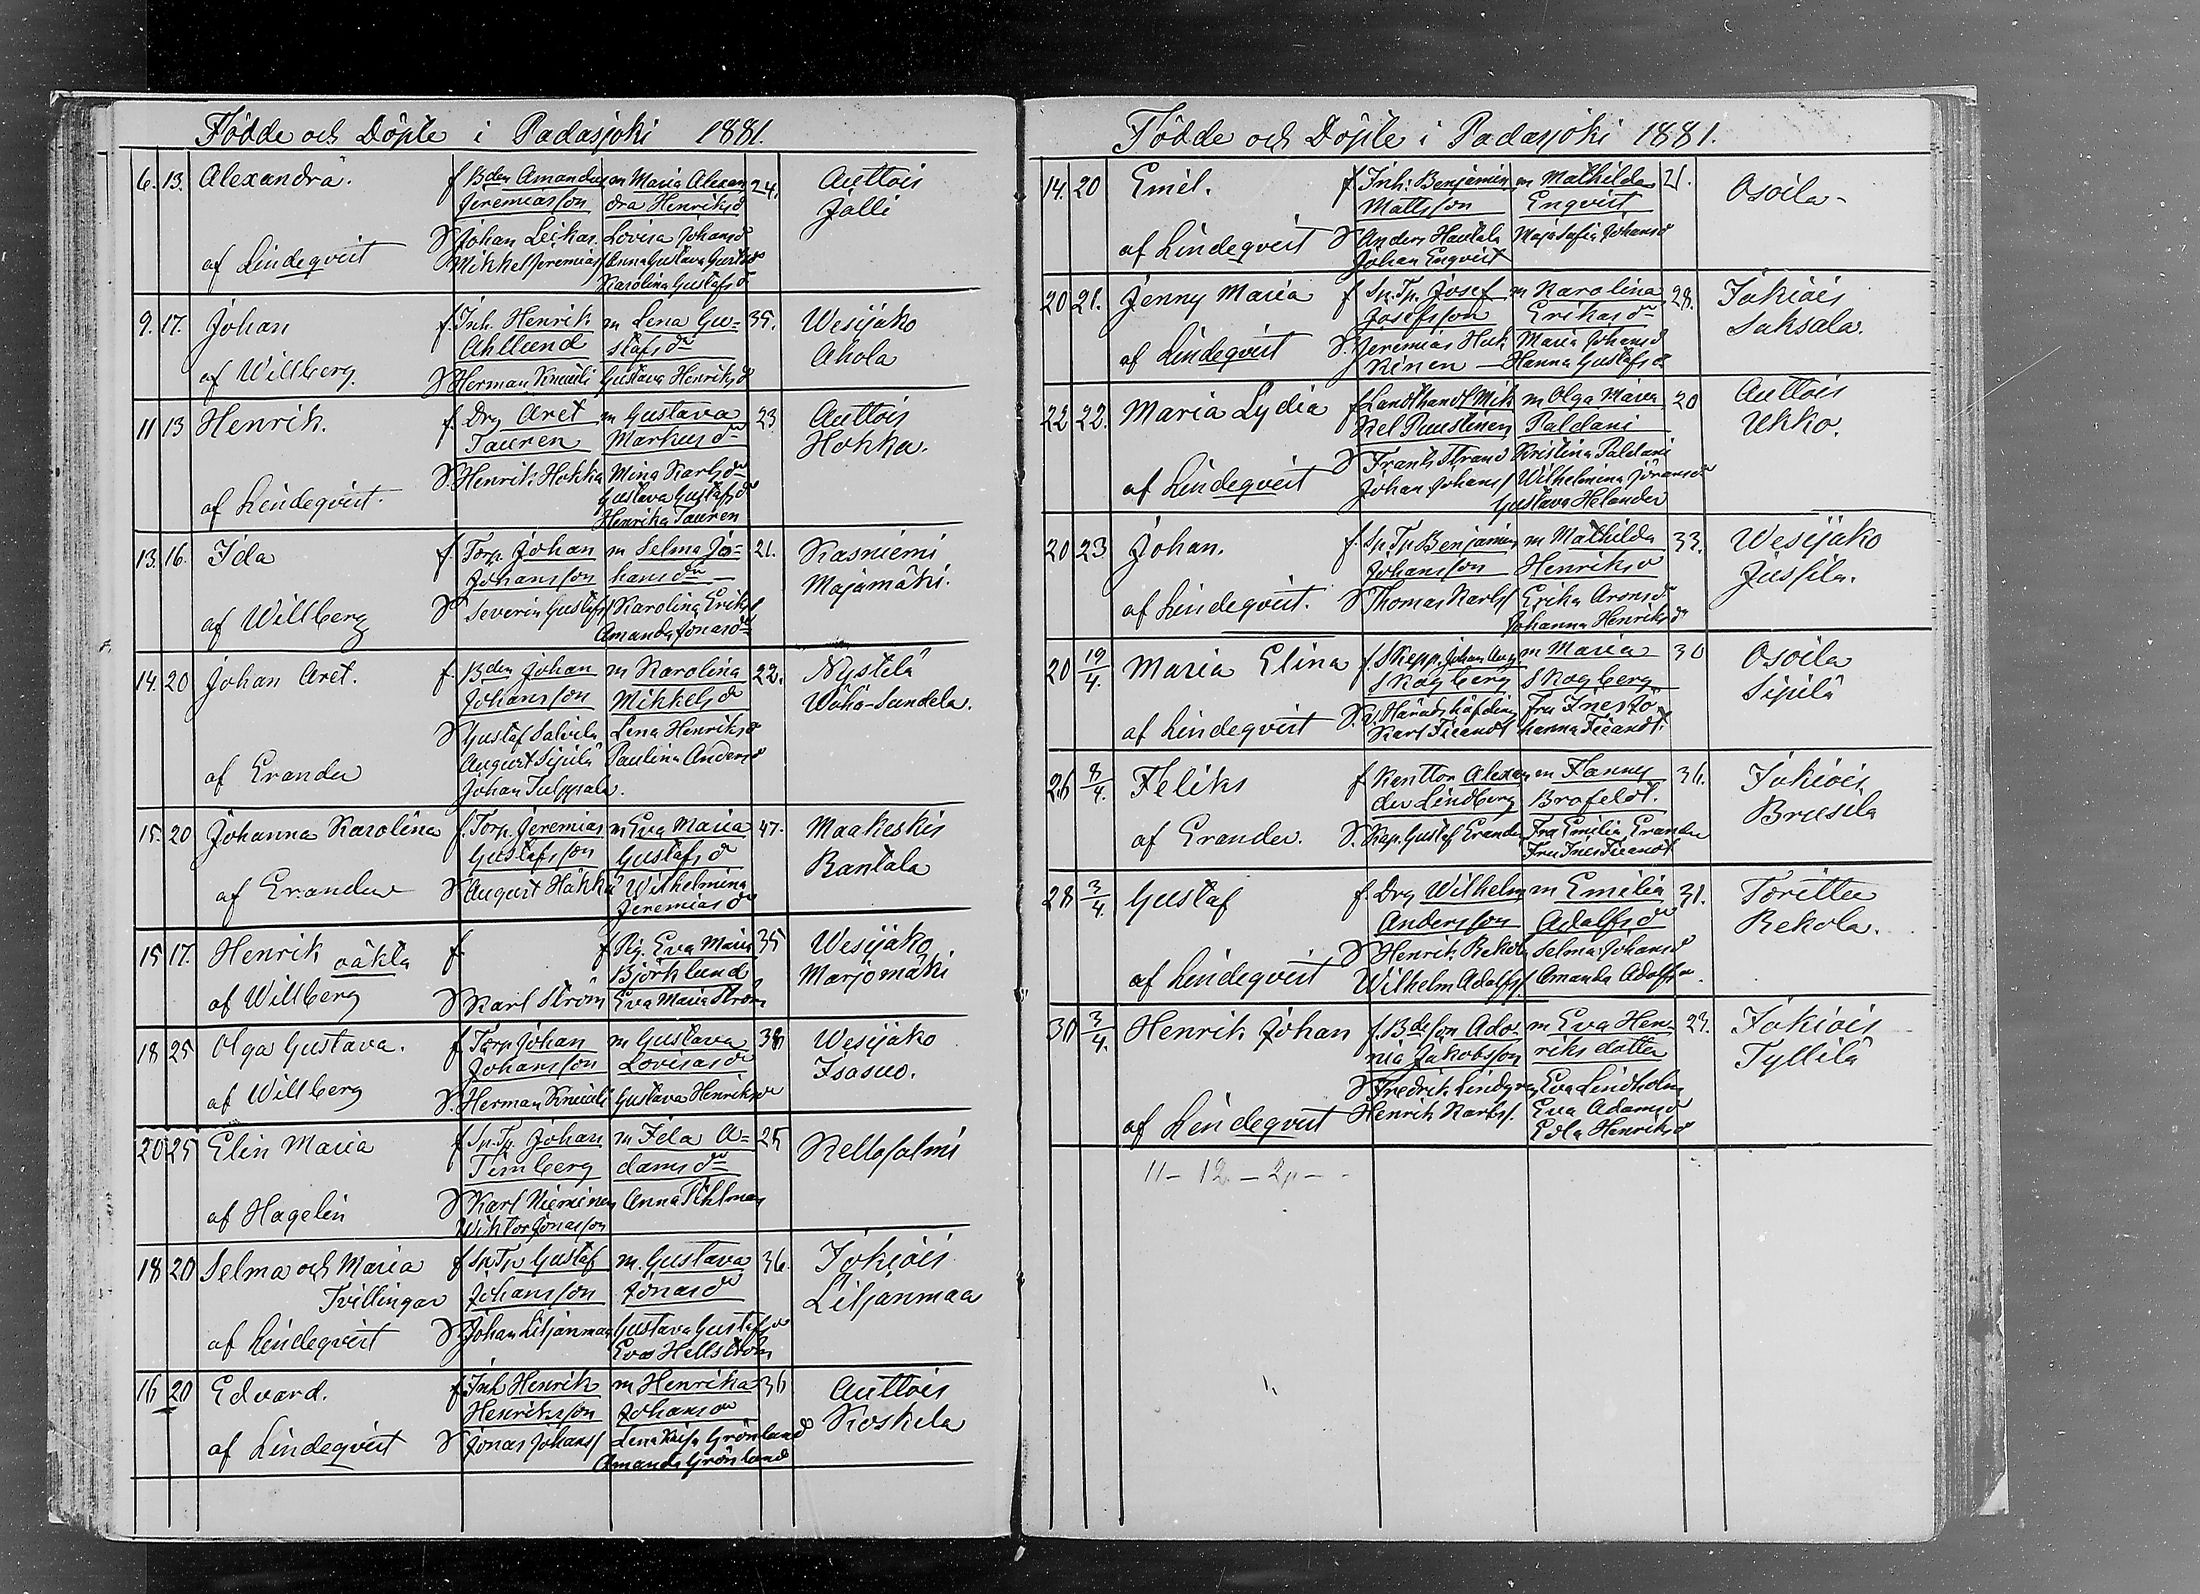 Födde och Döpte i Padasjoki 1881.
6. 13. Alexandra. f Bden Amandus m Maria Alexan 24. Auttois
Jeremiasson dra Henriksd Jolli
S Johan Leikas. Lovisa Johansd
af Lindeqvist Mikkel Jeremiass Anna Gustava Gustsd
Karolina Gustafsd
9. 17. Johan f. Inh. Henrik m Lena Gu= 35. Wesijako
Ahllund stafsdr Ahola
af Willberg. S Herman Knuuti Gustava Henriksd
11 13 Henrik. f. Drg Aret m Gustava 23 Auttois
Tauren Markusdr Hokka.
S. Henrik Hokka Mina Karlsdr
af Lindeqvist. Gustava Gustafsdr
Henrika Tauren
13. 16. Ida f. Torp. Johan m Selma Jo= 21. Kasniemi
Johansson hansdr Majamäki.
af Willberg S Severin Gustafss Karolina Eriks
Amanda Jonasdr
14. 20 Johan Aret. f Bden Johan m Karolina 22. Nystelä
Johansson Mikkelsd Wäho-Sundela.
S Gustaf Salvela Lena Henriksd
af Erander August Sipilä Paulina Andersd
Johan Tulppala.
15. 20 Johanna Karolina f. Torp. Jeremias m Eva Maria 47. Maakeskis
Gustafsson Gustafsd Rantala
af Erander S August Häkkä Wilhelmina
Jeremiasdr
15 17. Henrik oäkta f f Pig. Eva Maria 35 Wesijako
Björklund Marjomäki
af Willberg S Karl Ström Eva Maria Ström
18 25 Olga Gustava. f Torp Johan m Gustava 38 Wesijako
Johansson Lovisasdr Isosuo.
af Willberg S. Herman Knuuti Gustava Henriksdr
20 25 Elin Maria f Sp. Tp. Johan m Fela A= 25 Kellosalmi
Timberg damsdr
af Hagelin S Karl Nieminen Anna Pihlman
Wiktor Jonasson
18 20 Selma och Maria f Sp Tp Gustaf m. Gustava 36. Jokiois
Tvillingar Johansson Jonasdr Liljanmaa
af Lindeqvist S Johan Liljanmaa Gustava Gustafsdr
Eva Hellström
16 20 Edvard. f. Inh Henrik m Henrika 36 Auttois
Henriksson Johansdr Koskela
af Lindeqvist S Jonas Johanss Lena Kaisa Grönlund
Amanda Grönlund
Födde och Döpte i Padasjoki 1881.
14. 20 Emil. f. Inh: Benjamin m Mathilda 21. Osoila
Mattsson Enqvist
af Lindeqvist S Anders Hautala Maja Sofia Johansd
Johan Enqvist
20 21. Jenny Maria f Sp. Tp. Josef m Karolina 28. Jokiois
Josefsson Eriksdr Saksala.
af Lindeqvist S. Jeremias Huk Maria Johansd
kinen Hanna Gustafsd
22 22. Maria Lydia f Landthandl Mik m Olga Maria 20 Auttois
kel Puustinen Paldani Ukko.
S Frans Strand Kristina Paldani
af Lindeqvist Johan Johanss Wilhelmina Göransdr
Gustava Helander
20 23 Johan. f. Sp Tp Benjamin m Mathilda 33. Wesijako
Johansson Henriksd Jussila.
af Lindeqvist. S Thomas Karlss Erika Aronsd
Johanna Henriksdr
20 19/4. Maria Elina f. Skepp. Johan Aug m Maria 30 Osoila
Skogberg Skogberg Sipilä
af Lindeqvist S. v. Häradshöfding Fru Ines Jo
Karl Tieandt hanna Tieandt.
26 8/4. Feliks f Kantton Alexan m Fanny 36. Jokiois
der Lindberg Brofeldt. Brusila
af Erander. S. Kap. Gustaf Erander Fru Emilia Erander
Fru Ines Tieandt
28 3/4. Gustaf f. Drg Wilhelm m Emilia 31. Torittu
Andersson Adolfsdr Rekola.
S Henrik Rekola Selma Johansd
af Lindeqvist Wilhelm Adolfss. Amanda Adolfsdr
30 3/4. Henrik Johan f. Bdeson Ado- m Eva Hen- 23. Jokiois
nia Jakobsson riksdotter Tyllilä
S Fredrik Lindgren Eva Lindholm
af Lindeqvist Henrik Karlss. Eva Adamsd
Edla Henriksd
11 - 12 - 2